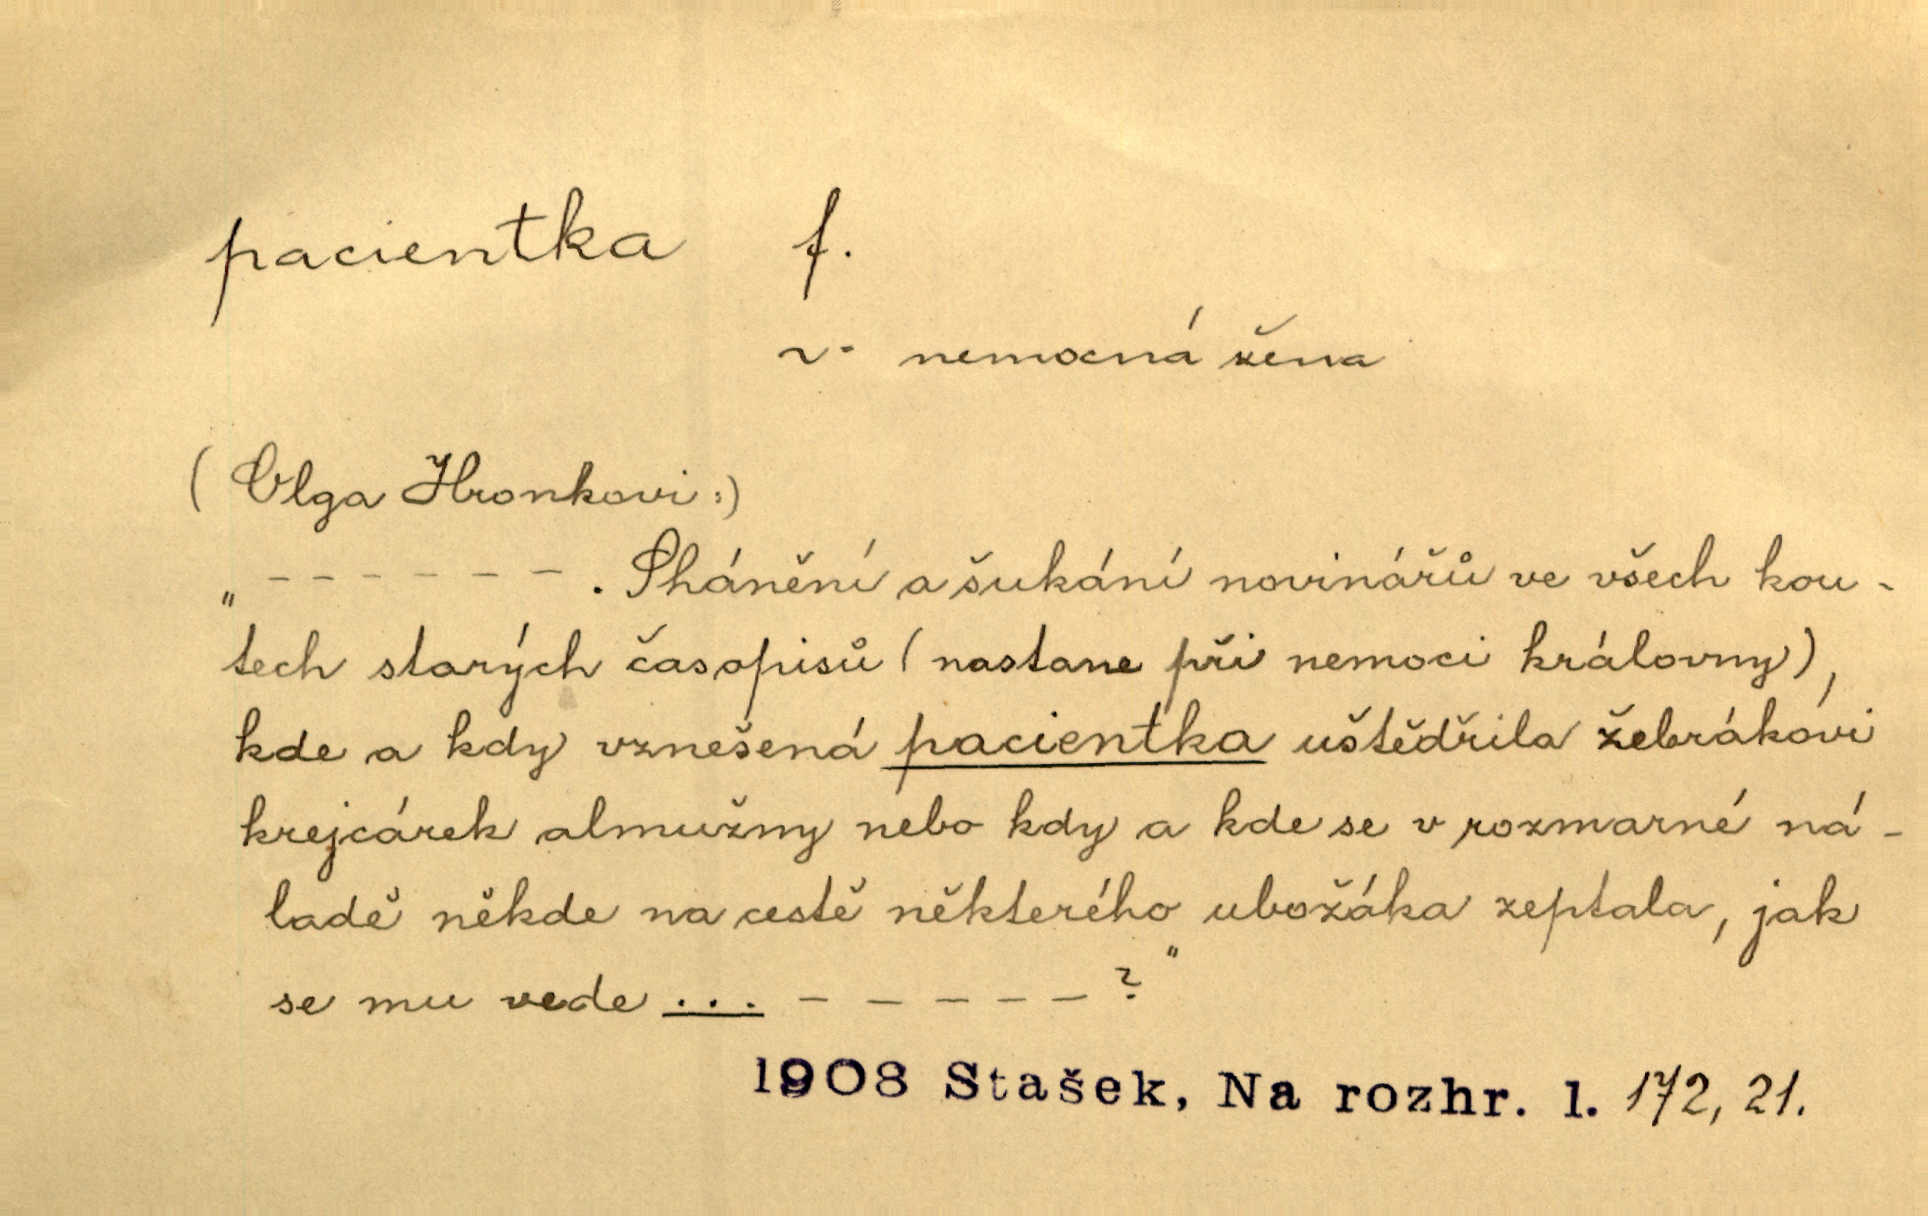 pacientka f.
v. nemocná žena
(Olga Hronkovi:)
„ – – – – – – . Shánění a šukání novinářů ve všech kou-
tech starých časopisů (nastane při nemoci královny),
kde a kdy vznešená pacientka uštědřila žebrákovi
krejcárek almužny nebo kdy a kde se v rozmarné ná-
ladě někde na cestě některého ubožáka zeptala, jak
se mu vede ... – – – – – ?"
1908 Stašek, Na rozhr. 1. 172, 21.